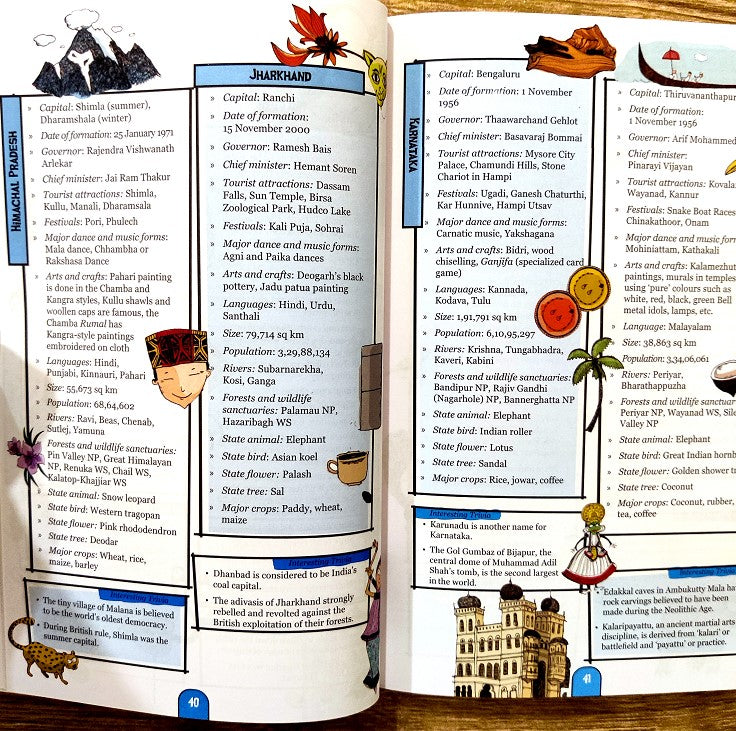 HIMACHAL PRADESH
» Capital: Shimla (summer),
Dharamshala (winter)
» Date of formation: 25 January 1971
» Governor: Rajendra Vishwanath
Arlekar
» Chief minister: Jai Ram Thakur
» Tourist attractions: Shimla,
Kullu, Manali, Dharamsala
» Festivals: Pori, Phulech
» Major dance and music forms:
Mala dance, Chhambha or
Rakshasa Dance
» Arts and crafts: Pahari painting
is done in the Chamba and
Kangra styles, Kullu shawls and
woollen caps are famous, the
Chamba Rumal has
Kangra-style paintings
embroidered on cloth
» Languages: Hindi,
Punjabi, Kinnauri, Pahari
» Size: 55,673 sq km
» Population: 68,64,602
» Rivers: Ravi, Beas, Chenab,
Sutlej, Yamuna
» Forests and wildlife sanctuaries:
Pin Valley NP, Great Himalayan
NP, Renuka WS, Chail WS,
Kalatop-Khajjiar WS
» State animal: Snow leopard
» State bird: Western tragopan
» State flower: Pink rhododendron
» State tree: Deodar
» Major crops: Wheat, rice,
maize, barley
Interesting Trivia
• The tiny village of Malana is believed
to be the world's oldest democracy.
• During British rule, Shimla was the
summer capital.
JHARKHAND
» Capital: Ranchi
» Date of formation:
15 November 2000
» Governor: Ramesh Bais
» Chief minister: Hemant Soren
» Tourist attractions: Dassam
Falls, Sun Temple, Birsa
Zoological Park, Hudco Lake
» Festivals: Kali Puja, Sohrai
» Major dance and music forms:
Agni and Paika dances
» Arts and crafts: Deogarh's black
pottery, Jadu patua painting
» Languages: Hindi, Urdu,
Santhali
» Size: 79,714 sq km
» Population: 3,29,88,134
» Rivers: Subarnarekha,
Kosi, Ganga
» Forests and wildlife
sanctuaries: Palamau NP,
Hazaribagh WS
» State animal: Elephant
» State bird: Asian koel
» State flower: Palash
» State tree: Sal
» Major crops: Paddy, wheat,
maize
Interesting Trivia
• Dhanbad is considered to be India's
coal capital.
• The adivasis of Jharkhand strongly
rebelled and revolted against the
British exploitation of their forests.
40
KARNATAKA
» Capital: Bengaluru
» Date of formation: 1 November
1956
» Governor: Thaawarchand Gehlot
» Chief minister: Basavaraj Bommai
» Tourist attractions: Mysore City
Palace, Chamundi Hills, Stone
Chariot in Hampi
» Festivals: Ugadi, Ganesh Chaturthi,
Kar Hunnive, Hampi Utsav
» Major dance and music forms:
Carnatic music, Yakshagana
» Arts and crafts: Bidri, wood
chiselling, Ganjifa (specialized card
game)
» Languages: Kannada,
Kodava, Tulu
» Size: 1,91,791 sq km
» Population: 6,10,95,297
» Rivers: Krishna, Tungabhadra,
Kaveri, Kabini
» Forests and wildlife sanctuaries:
Bandipur NP, Rajiv Gandhi
(Nagarhole) NP, Bannerghatta NP
» State animal: Elephant
» State bird: Indian roller
» State flower: Lotus
» State tree: Sandal
» Major crops: Rice, jowar, coffee
Interesting Trivia
• Karunadu is another name for
Karnataka.
• The Gol Gumbaz of Bijapur, the
central dome of Muhammad Adil
Shah's tomb, is the second largest
in the world.
» Capital: Thiruvananthapur
» Date of formation:
1 November 1956
» Governor: Arif Mohammed
» Chief minister:
Pinarayi Vijayan
» Tourist attractions: Kovala
Wayanad, Kannur
» Festivals: Snake Boat Races
Chinakathoor, Onam
» Major dance and music form
Mohiniattam, Kathakali
» Arts and crafts: Kalamezhut
paintings, murals in temples
using 'pure' colours such as
white, red, black, green Bell
metal idols, lamps, etc.
» Language: Malayalam
» Size: 38,863 sq km
» Population: 3,34,06,061
» Rivers: Periyar,
Bharathappuzha
» Forests and wildlife sanctuar
Periyar NP, Wayanad WS, Sile
Valley NP
» State animal: Elephant
» State bird: Great Indian hornb
» State flower: Golden shower t
» State tree: Coconut
» Major crops: Coconut, rubber,
tea, coffee
Interesting Trivia
• Edakkal caves in Ambukutty Mala ha
rock carvings believed to have been
made during the Neolithic Age.
• Kalaripayattu, an ancient martial arts
discipline, is derived from 'kalari' or
battlefield and 'payattu' or practice.
41